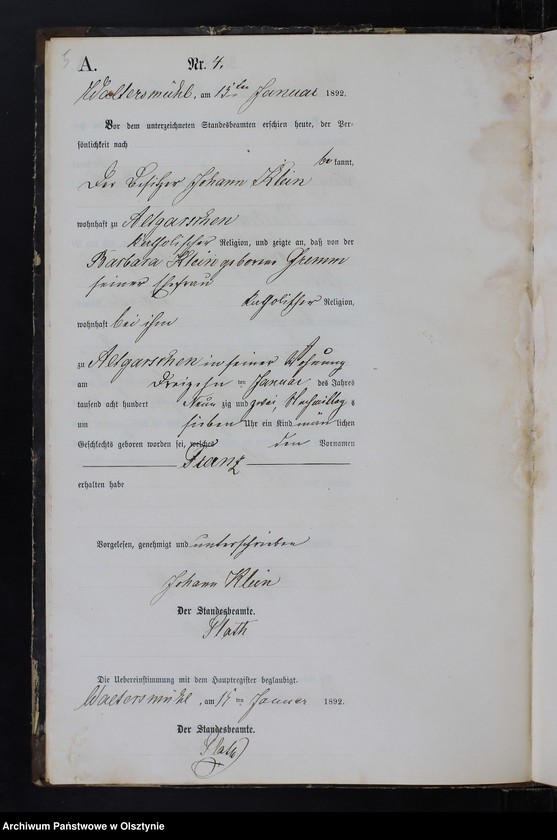 5
A. Nr. 4.
Waltersmühl, am 15ten Januar 1892.
Vor dem unterzeichneten Standesbeamten erschien heute, der Per-
sönlichkeit nach
be kannt,
Der Besitzer Johann Klein
wohnhaft zu Altgarschen
katholischer Religion, und zeigte an, daß von der
Barbara Klein geborene Gremm
seiner Ehefrau
katholischer Religion,
wohnhaft bei ihm
zu Altgarschen in seiner Wohnung
am Dreizehn ten Januar des Jahres
tausend acht hundert Neun zig und zwei, Nachmittag s
um sieben Uhr ein Kind männ lichen
Geschlechts geboren worden sei, welches den Vornamen
Franz
erhalten habe
Vorgelesen, genehmigt und unterschrieben
Johann Klein
Der Standesbeamte.
Die Uebereinstimmung mit dem Hauptregister beglaubigt.
Waltersmühl, am 15 ten Januar 1892.
Der Standesbeamte.
Archiwum Państwowe w Olsztynie